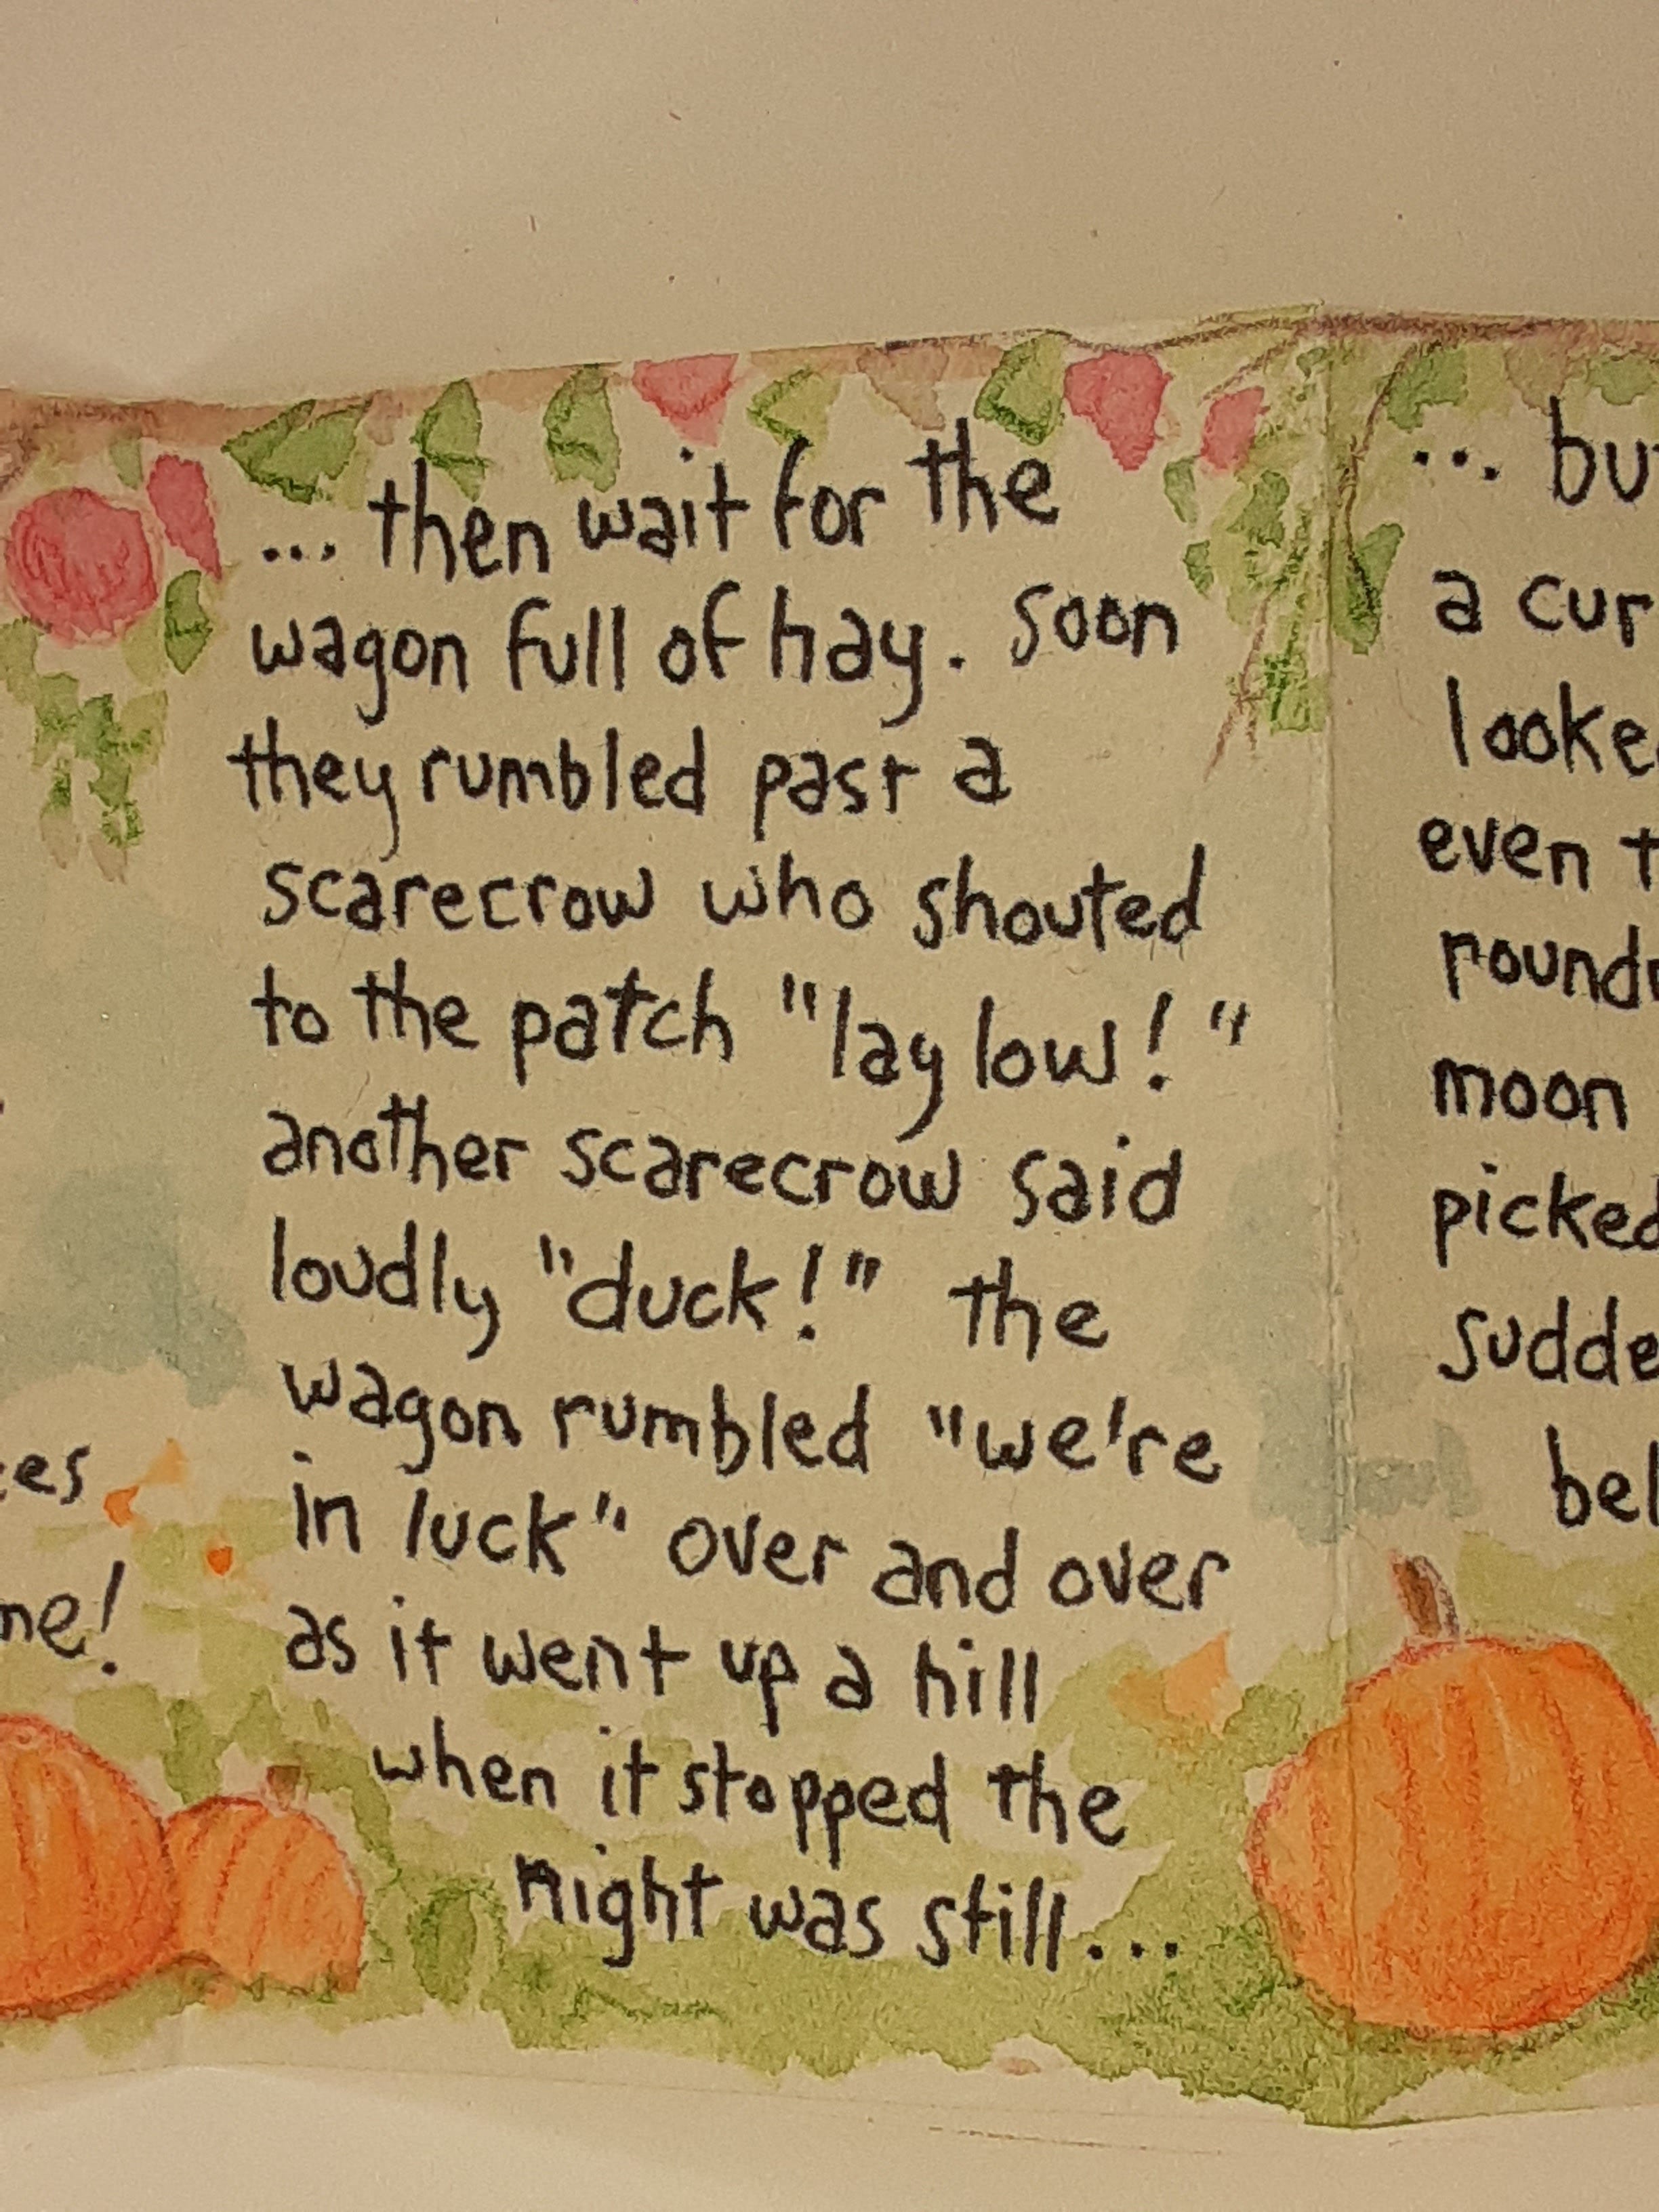 ... then wait for the
wagon full of hay. soon
they rumbled past a
scarecrow who shouted
to the patch "lay low!"
another scarecrow said
loudly "duck!" the
wagon rumbled "we're
in luck" over and over
as it went up a hill
when it stopped the
night was still...
me!
... 
a
even
moon
picked